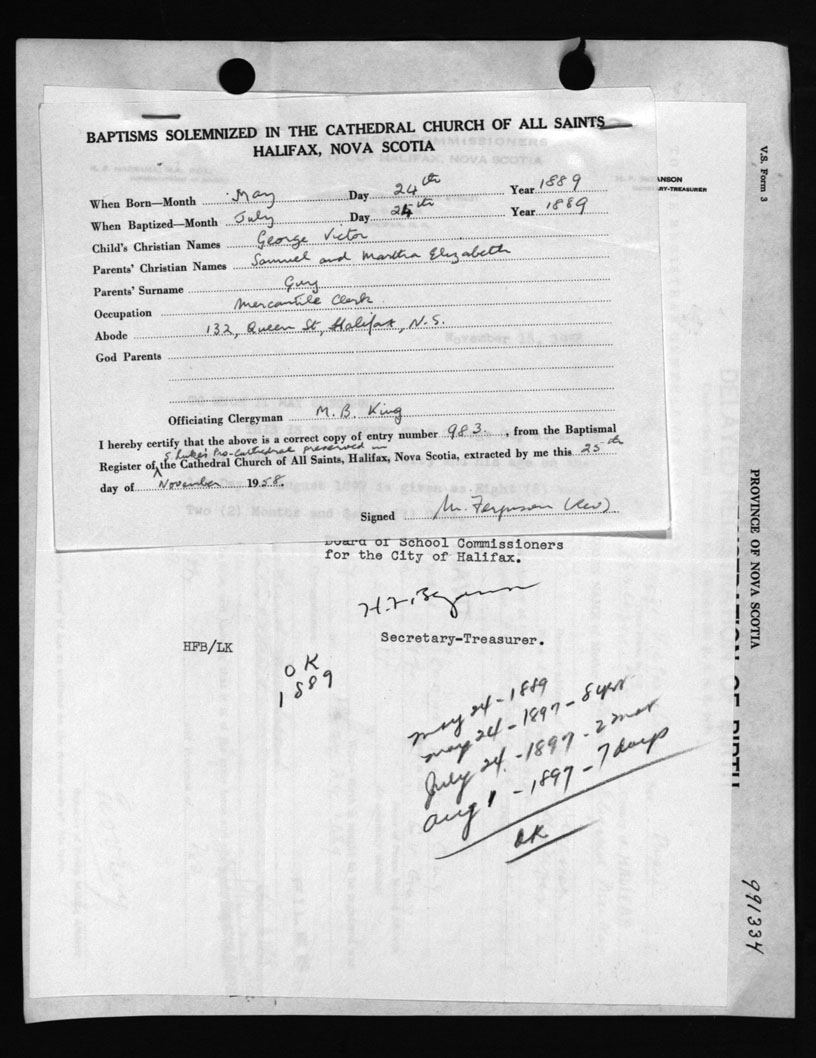 BAPTISMS SOLEMNIZED IN THE CATHEDRAL CHURCH OF ALL SAINTS
HALIFAX, NOVA SCOTIA
When Born—Month May Day 24th Year 1889
When Baptized—Month July Day 25th Year 1889
Child's Christian Names George Victor
Parents' Christian Names Samuel and Martha Elizabeth
Parents' Surname Guy
Occupation Mercantile Clerk.
Abode 132, Queen St, Halifax, N.S.
God Parents
Officiating Clergyman M. B. King
I hereby certify that the above is a correct copy of entry number 983. , from the Baptismal
S. Luke's Pro-Cathedral preserved in
Register of the Cathedral Church of All Saints, Halifax, Nova Scotia, extracted by me this 25th
day of November 1958.
Signed M. Ferguson (Rev)
ANSON
RY-TREASURER
November
Two (2) Months and
Board of School Commissioners
for the City of Halifax.
Secretary-Treasurer.
HFB/LK
OK
1889
May 24 - 1889
May 24 - 1897 - 8 yrs
July 24 - 1897 - 2 mos
Aug 1 - 1897 - 7 days
OK
V.S. Form 3
PROVINCE OF NOVA SCOTIA
OF BIRTH
991334